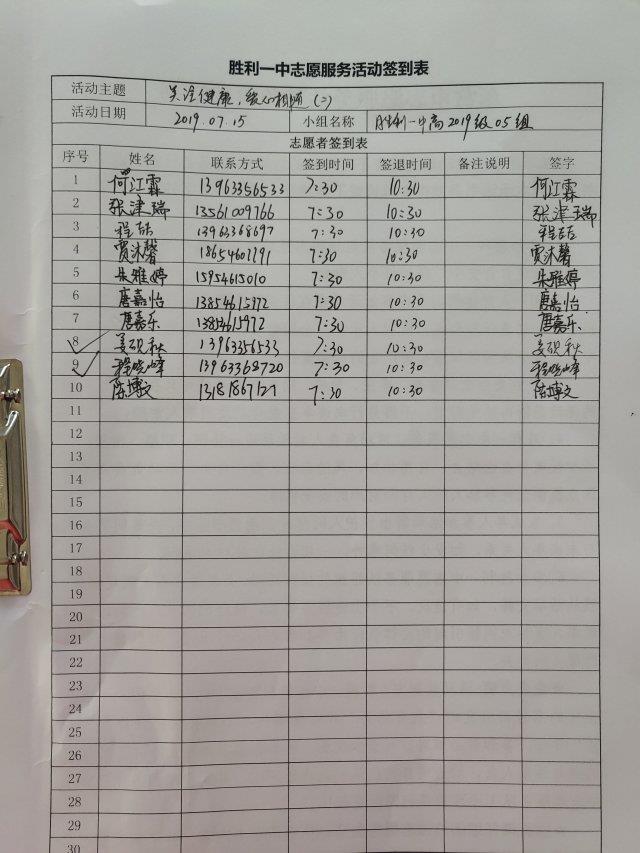 胜利一中志愿服务活动签到表
活动主题 关注健康，爱心相随（二）
活动日期 2019.07.15 小组名称 胜利一中高2019级05组
志愿者签到表
序号 姓名 联系方式 签到时间 签退时间 备注说明 签字
1 何江霖 13963356533 7:30 10:30 何江霖
2 张津瑞 13561009766 7:30 10:30 张津瑞
3 程喆 13963368697 7:30 10:30 程喆
4 贾沐馨 7:30 10:30 贾沐馨
5 朱雅婷 15954615010 7:30 10:30 朱雅婷
6 唐嘉怡 7:30 10:30 唐嘉怡
7 唐嘉乐 7:30 10:30 唐嘉乐
8 姜砚秋 13963356533 7:30 10:30 姜砚秋
9 程晓峰 13963368720 7:30 10:30 程晓峰
10 陈博文 7:30 10:30 陈博文
11
12
13
14
15
16
17
18
19
20
21
22
23
24
25
26
27
28
29
30